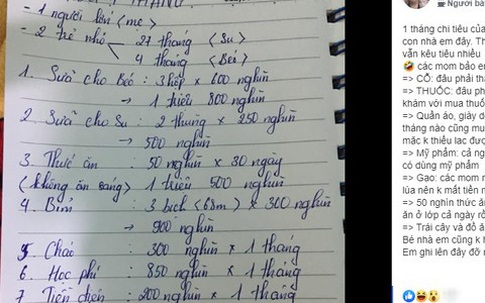 THÁNG
- 1 người lớn (mẹ)
- 2 trẻ nhỏ 27 tháng (Su)
4 tháng (Béo)
1. Sữa cho Béo : 3 hộp × 600 nghìn
→ 1 triệu 800 nghìn
2. Sữa cho Su : 2 thùng × 250 nghìn
→ 500 nghìn
3. Thức ăn : 50 nghìn × 30 ngày
(không ăn sáng) 1 triệu 500 nghìn
4. Bỉm : 3 bịch (68m) × 300 nghìn
→ 900 nghìn
5 Cháo : 300 nghìn × 1 tháng
6. Học phí : 850 nghìn × 1 tháng
7 Tiền điện : 200 nghìn × 1 tháng
Người bá
1 tháng chi tiêu của
con nhà em đây. Th
vẫn kêu tiêu nhiều
các mom bảo em
=> CỖ: đâu phải thá
=> THUỐC: đâu ph
khám với mua thuố
=> Quần áo, giày d
tháng nào cũng mu
mặc k thiếu lac đượ
=> Mỹ phẩm: cả ng
có dùng mỹ phẩm
=> Gạo: các mom r
lúa nên k mất tiền n
=> 50 nghìn thức ăn
ăn ở lớp cả ngày rồ
=> Trái cây và đồ ă
Bé nhà em cũng k h
Em ghi lên đây đỡ n